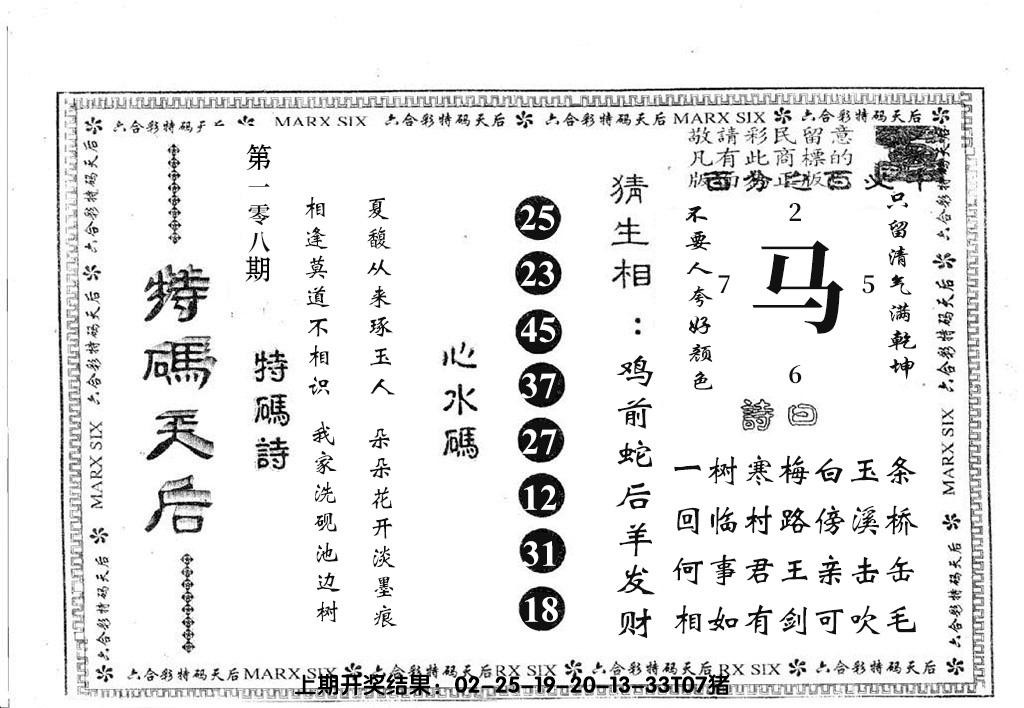 六合彩特码天后 MARX SIX 六合彩特码天后 六合彩特码天后 MARX SIX 六合彩特码天后
敬請彩民留意
凡有此商標的
版面为正版
第一零八期
特碼天后
特碼詩
相逢莫道不相识 我家洗砚池边树
夏馥从来琢玉人 朵朵花开淡墨痕
心水碼
25
23
45
37
27
12
31
18
猜生相：鸡前蛇后羊发财
不要人夸好颜色
只留清气满乾坤
2
7
马
5
6
詩曰
一树寒梅白玉条
回临村路傍溪桥
何事君王亲击缶
相如有剑可吹毛
六合彩特码天后
MARX SIX
六合彩特码天后
六合彩特码天后
六合彩特码天后
六合彩特码天后
六合彩特码天后
MARX SIX
六合彩特码天后
六合彩特码天后 MARX SIX 六合彩特码天后 RX SIX 六合彩特码天后 RX SIX 六合彩特码天后
上期开奖结果：02-25-19-20-13-33T07猪